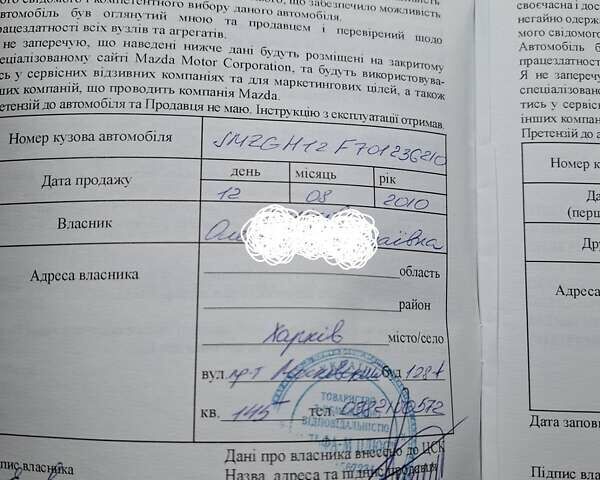 ого свідомого і компетентного вибору даного автомобіля.
втомобіль був оглянутий мною та продавцем і перевірений щодо
рацездатності всіх вузлів та агрегатів.
не заперечую, що наведені нижче дані будуть розміщені на закритому
еціалізованому сайті Mazda Motor Corporation, та будуть використовува-
сь у сервісних відзивних компаніях та для маркетингових цілей, а також
ших компаній, що проводить компанія Mazda.
ретензій до автомобіля та Продавця не маю. Інструкцію з експлуатації отримав.
Номер кузова автомобіля JMZGH12F701236210
Дата продажу
день місяць рік
12 08 2010
Власник
Адреса власника
область
район
Харків місто/село
вул. пр-т Московский буд 128А
кв. 145 тел.
ТОВАРИСТВО
ВІДПОВІДАЛЬНІСТЮ
Дані про власника внесено до ЦСК
Назва, адреса та підпис продавця
пис власника
своєчасна і дос
негайно одерж
мого свідомого
Автомобіль б
працездатност
Я не заперечу
спеціалізовано
тись у сервісн
інших компан
Претензій до а
Номер к
Да
(перш
Дру
Адреса
Дата запов
Підпис влас